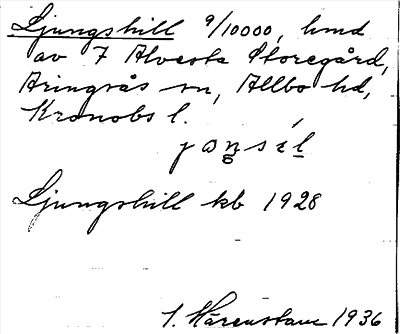 Ljungshill 9/10000, hmd
av 7 Alvesta Storegård,
Aringsås sn, Allbo hd,
Kronobs l.
Ljungshill kb 1928
S. Hårenstam 1936